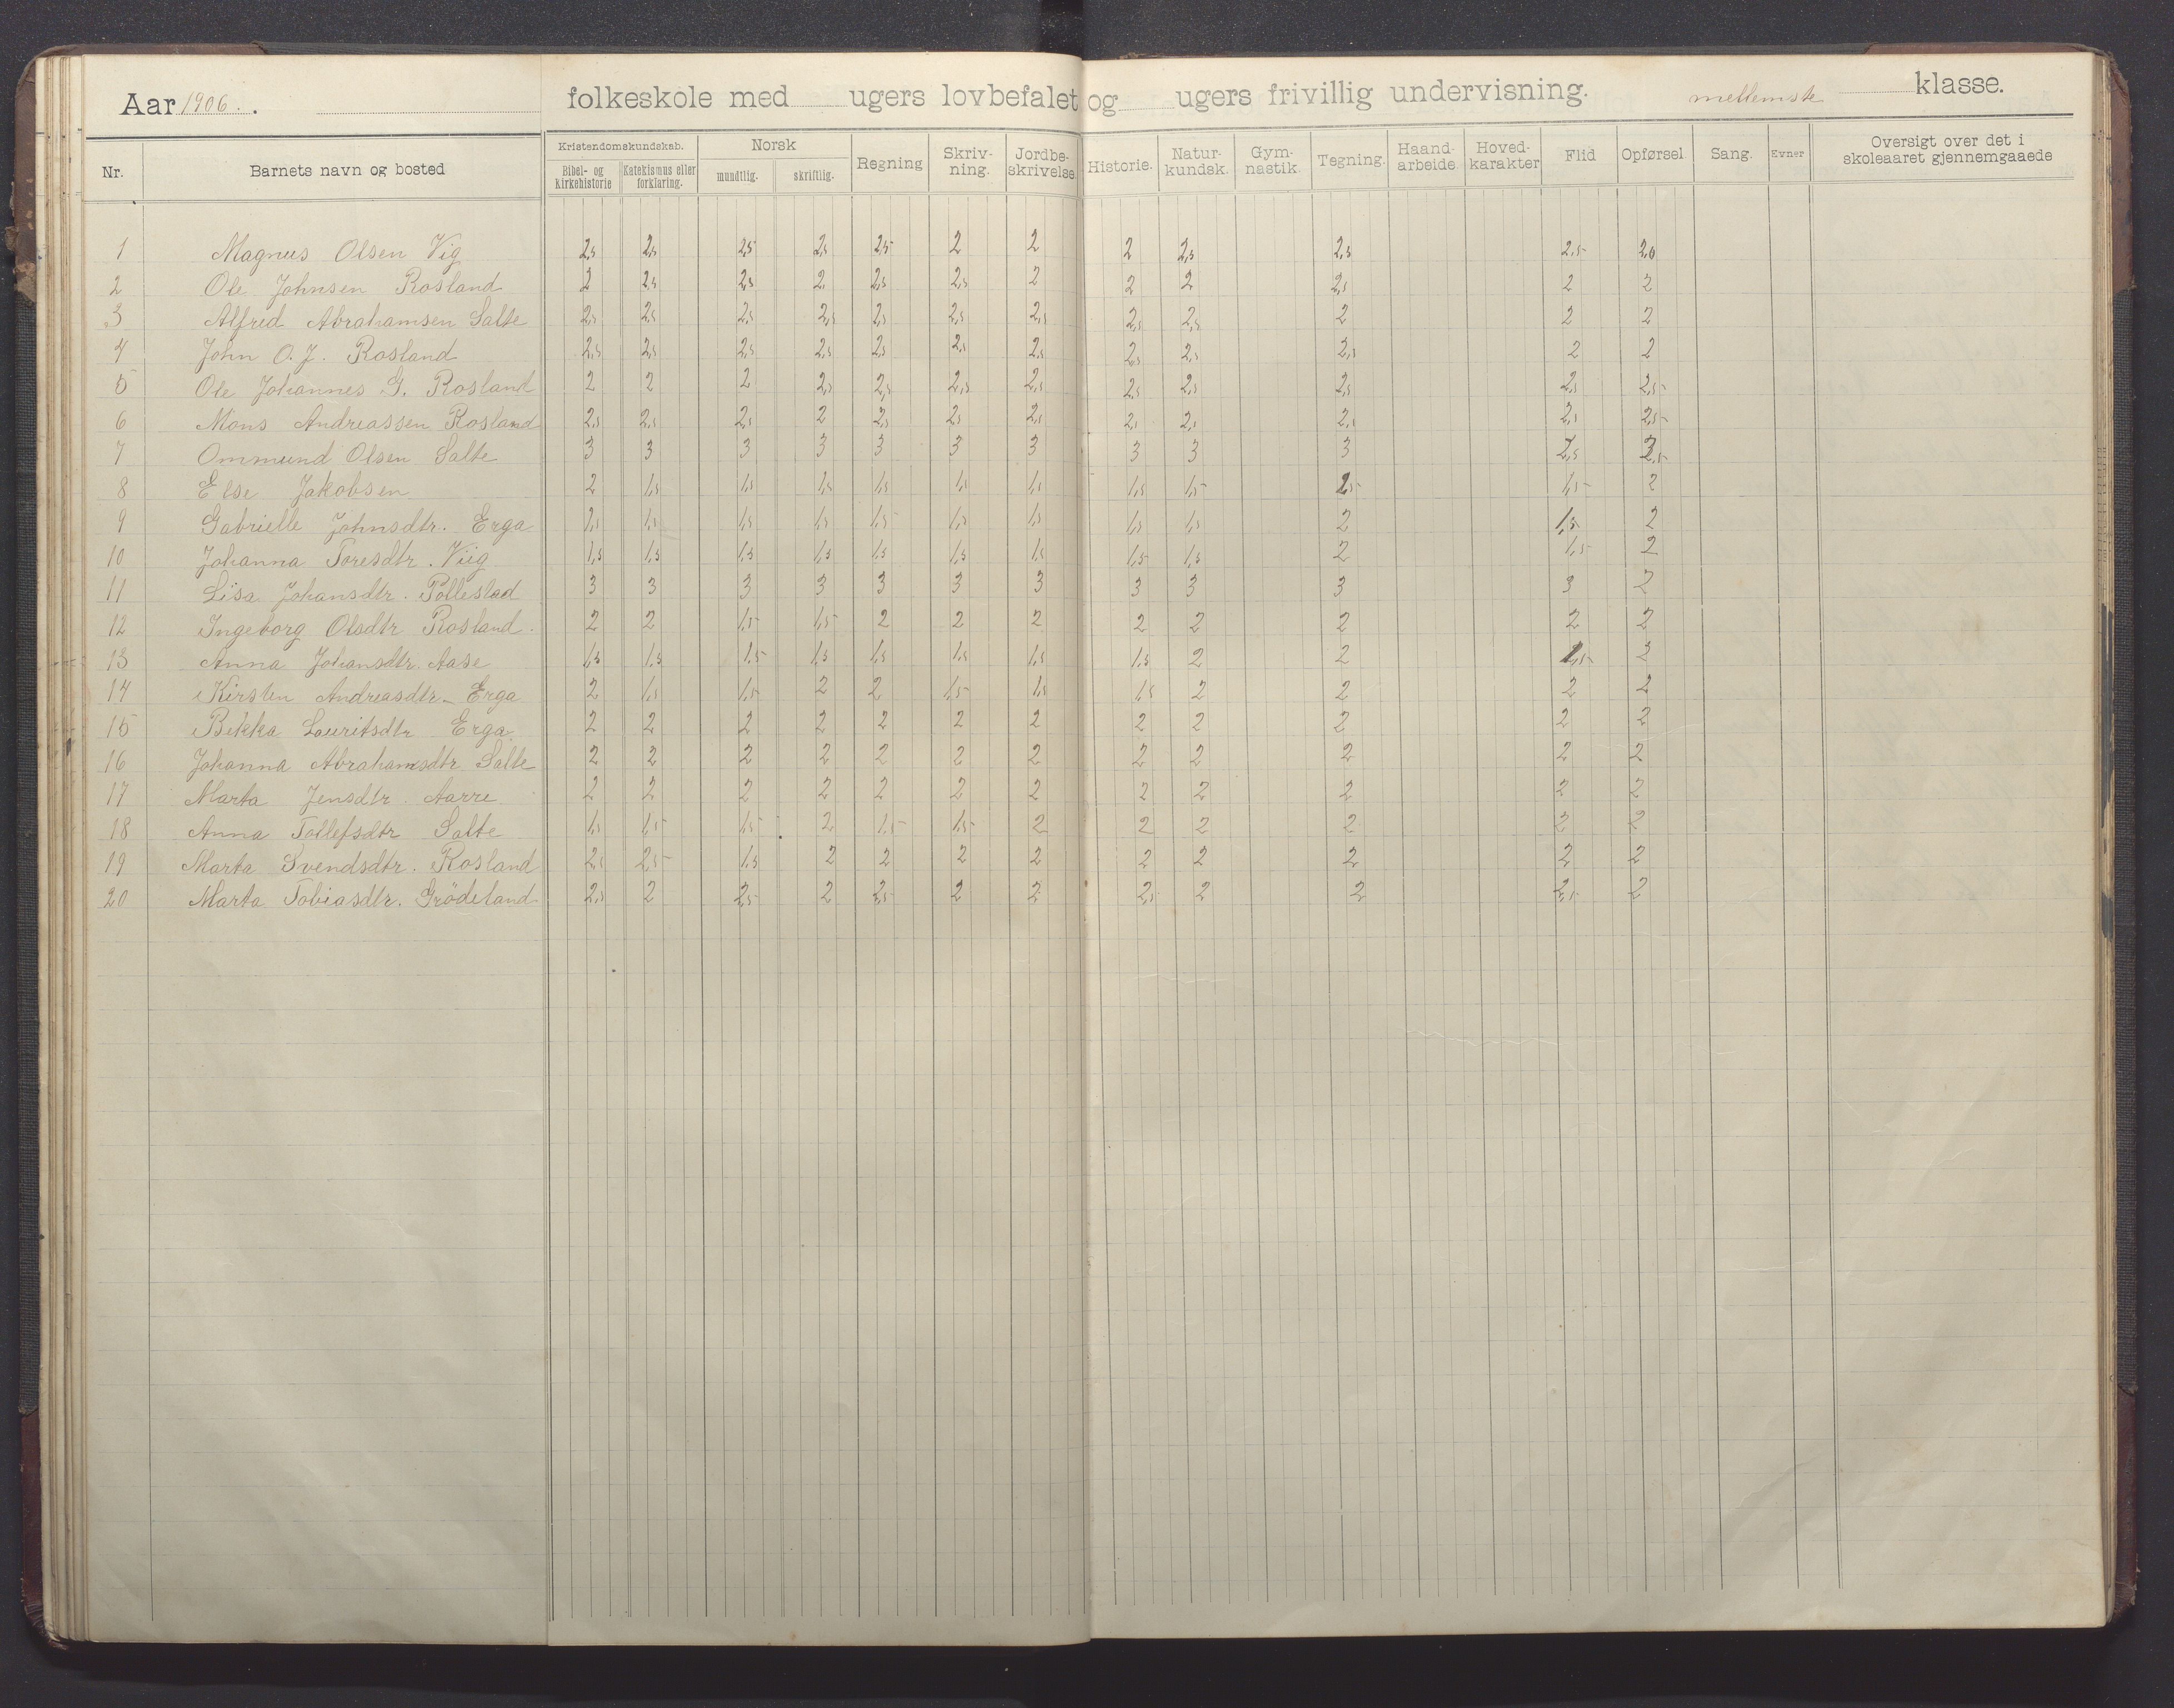 Aar 1906. folkeskole med ugers lovbefalet og ugers frivillig undervisning. mellemste klasse.
Nr. Barnets navn og bosted Kristendomskundskab. Bibel- og Kirkehistorie Katekismus eller forklaring. Norsk mundtlig. skriftlig. Regning Skriv-ning. Jordbe-skrivelse. Historie. Natur-kundsk. Gym-nastik. Tegning. Haand-arbeide Hoved-karakter Flid Opførsel Sang. Evner Oversigt over det i skoleaaret gjennemgaaede
1 Magnus Olsen Vig 2,5 2,5 2,5 2,5 2,5 2 2 2 2,5 2,5 2,5 2,0
2 Ole Johnsen Rosland 2 2,5 2,5 2 2,5 2,5 2 2 2 2,5 2 2
3 Alfred Abrahamsen Salte 2,5 2,5 2,5 2,5 2,5 2,5 2,5 2,5 2,5 2 2 2
4 John O. J. Rosland 2,5 2,5 2,5 2,5 2,5 2,5 2,5 2,5 2,5 2,5 2 2
5 Ole Johannes G. Rosland 2 2 2 2,5 2,5 2,5 2,5 2,5 2,5 2,5 2,5 2,5
6 Mons Andreassen Rosland 2,5 2,5 2,5 2 2,5 2,5 2,5 2,5 2,5 2,5 2,5 2,5
7 Ommund Olsen Salte 3 3 3 3 3 3 3 3 3 3 2,5 2,5
8 Else Jakobsen 2 1,5 1,5 1,5 1,5 1,5 1,5 1,5 1,5 1,5 2
9 Gabrielle Johnsdtr. Erga 1,5 1,5 1,5 1,5 1,5 1,5 1,5 1,5 1,5 2 1,5 2
10 Johanna Toresdtr. Viig 1,5 1,5 1,5 1,5 1,5 1,5 1,5 1,5 1,5 2 1,5 2
11 Lisa Johansdtr. Pollestad 3 3 3 3 3 3 3 3 3 3 3 2
12 Ingeborg Olsdtr Rosland. 2 2 1,5 1,5 2 2 2 2 2 2 2 2
13 Anna Johansdtr. Aase 1,5 1,5 1,5 1,5 1,5 1,5 1,5 1,5 2 2 1,5 2
14 Kirsten Andreasdtr. Erga 2 1,5 1,5 2 2 1,5 1,5 1,5 2 2 2 2
15 Bekka Lauritsdtr Erga. 2 2 2 2 2 2 2 2 2 2 2 2
16 Johanna Abrahamsdtr Salte 2 2 2 2 2 2 2 2 2 2 2 2
17 Marta Jensdtr. Aarre 2 2 2 2 2 2 2 2 2 2 2 2
18 Anna Tollefsdtr Salte 1,5 1,5 1,5 2 1,5 1,5 2 2 2 2 2 2
19 Marta Svendsdtr. Rosland 2,5 2,5 1,5 2 2 2 2 2 2 2 2 2
20 Marta Tobiasdtr. Grödeland 2,5 2 2,5 2 2,5 2 2 2,5 2 2 2,5 2